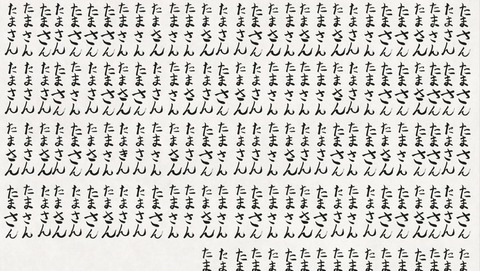 たまさん たまさん たまさん たまさん たまさん たまさん たまさん たまさん たまさん たまさん たまさん たまさん たまさん たまさん たまさん たまさん たまさん たまさん たまさん たまさん たまさん たまさん たまさん たまさん たまさん たまさん たまさん たまさん たまさん
たまさん たまさん たまさん たまさん たまさん たまさん たまさん たまさん たまさん たまさん たまさん たまさん たまさん たまさん たまさん たまさん たまさん たまさん たまさん たまさん たまさん たまさん たまさん たまさん たまさん たまさん たまさん たまさん たまさん
たまさん たまさん たまさん たまさん たまさん たまさん たまさん たまさん たまさん たまさん たまさん たまさん たまさん たまさん たまさん たまさん たまさん たまさん たまさん たまさん たまさん たまさん たまさん たまさん たまさん たまさん たまさん たまさん たまさん
たまさん たまさん たまさん たまさん たまさん たまさん たまさん たまさん たまさん たまさん たまさん たまさん たまさん たまさん たまさん たまさん たまさん たまさん たまさん たまさん たまさん たまさん たまさん たまさん たまさん たまさん たまさん たまさん たまさん
たま たま たま たま たま たま たま たま たま たま たま たま たま たま たま たま たま